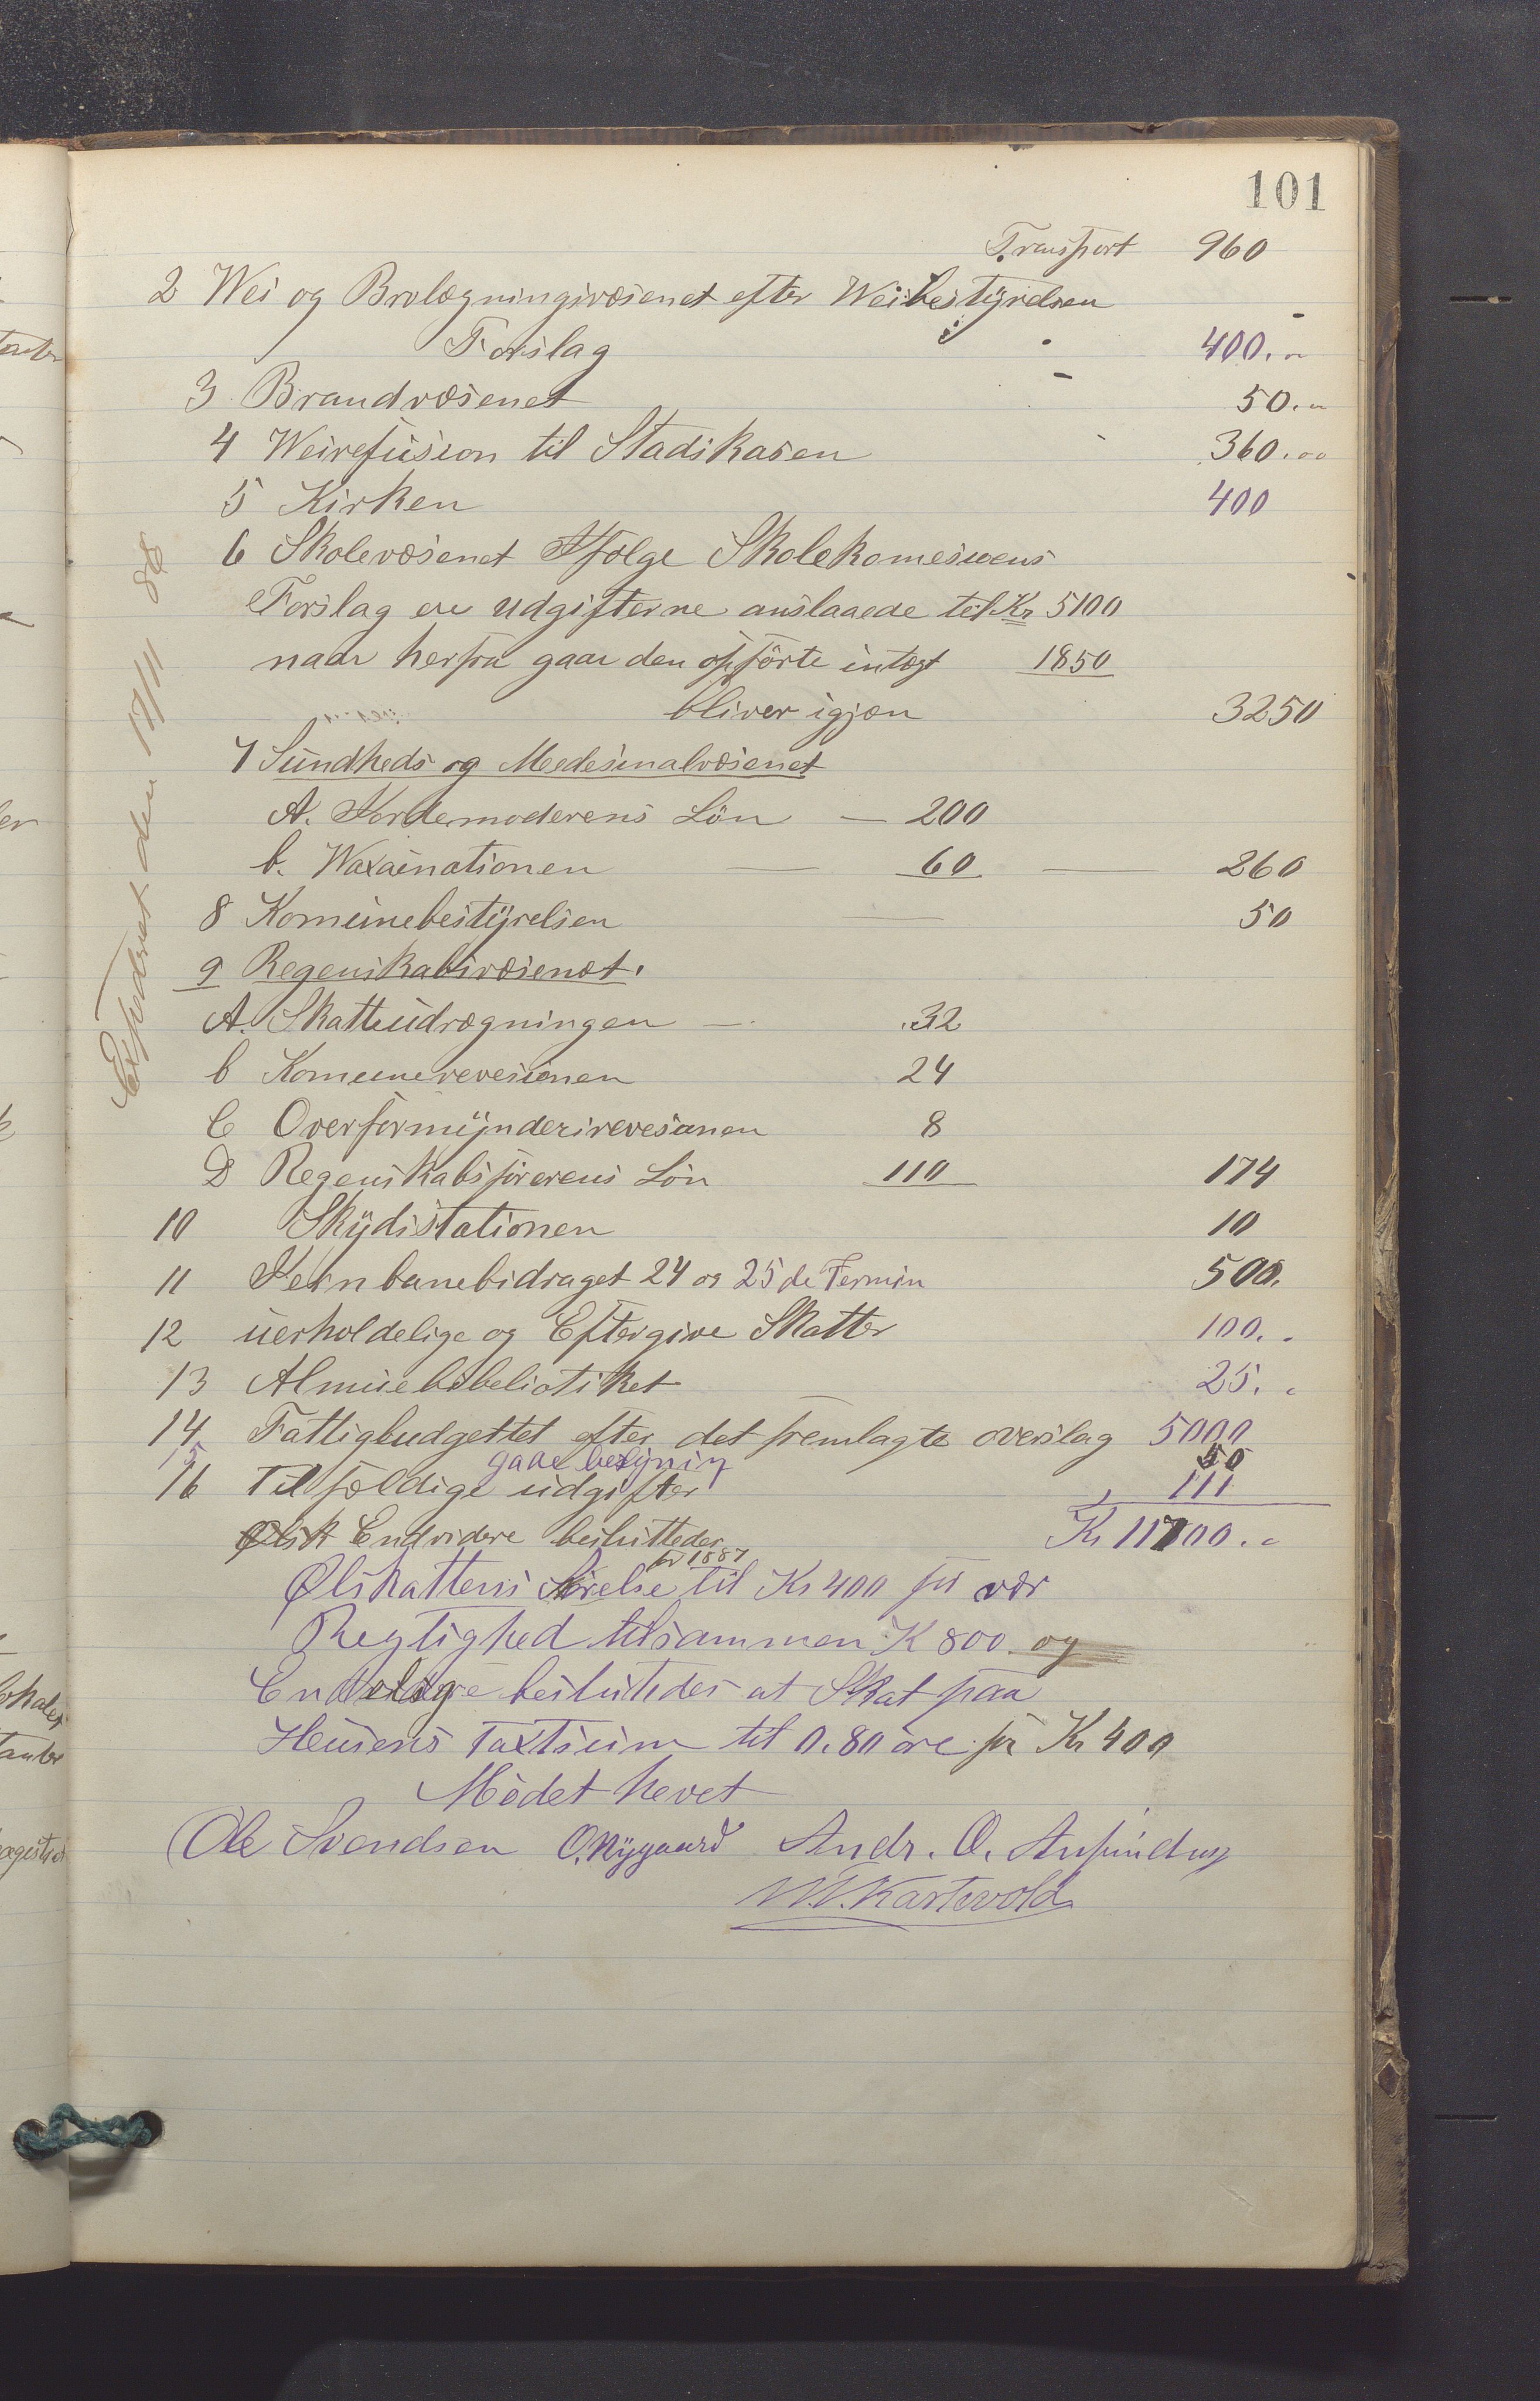 101
Transport 960
2 Wei og Brolægningsvæsenet efter Weibestÿrelsen
Forslag 400. "
3 Brandvæsenet 50. "
4 Weirefusion til Stadskasen 360.00
5 Kirken 400
6 Skolevæsenet Ifølge Skolekomesuens
Forslag ere udgifterne anslaaede til Kr 5100
naar herfra gaar den opförte intægt 1850
bliver igjæn 3250
7 Sundheds og Medesinalvæsenet
A. Jordemoderens Lön — 200
b. Waxainationen — 60 — 260
8 Komunebestÿrelsen — 50
9 Regenskabsvæsenet.
A. Skatteudrægningen — 32
b Komunerevesionen 24
C Overformÿnderirevesionen 8
D Regenskabsförerens Lön 110 174
10 Skÿdistationen 10
11 Jernbanebidraget 24 og 25de Termin 500.
12 uerholdelige og Eftergive Skatter 100. "
13 Almuebibeliotiket 25. "
14 Fattigbudgettet efter det fremlagte overslag 5000
15 gade belysning 50
16 Tilfældige udgifter 111
Ølsk Endvidere besluttedes Kr 11700. "
for 1887
Ølskattens Störelse til Kr 400 for vær
Regtighed tilsammen K 800. og
Endelig beslutedes at Skat paa
Husens Taxtsum til 0.80 öre pr Kr 400
Mödet hevet
Ole Svendsen O. Nygaard Andr. O. Anfindsen
M. Kartevold
Exfederet den 17/11 88